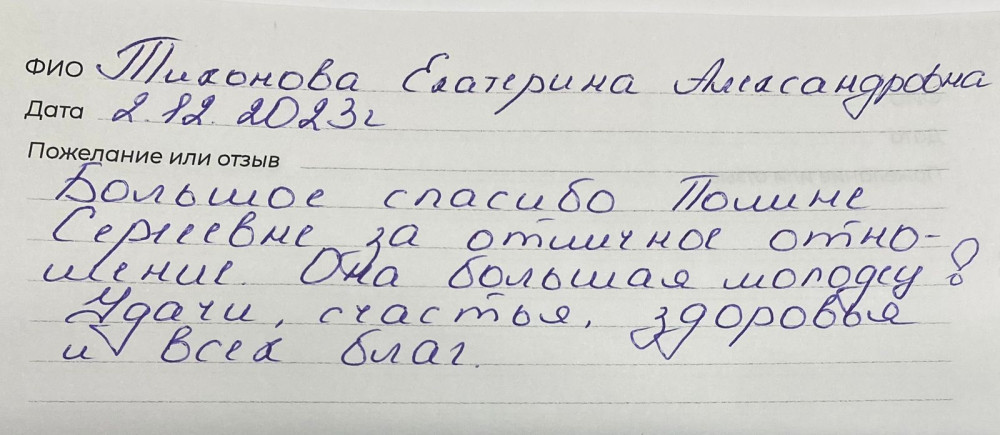 ФИО Тихонова Екатерина Александровна
Дата 2.12.2023г
Пожелание или отзыв
Большое спасибо Полине
Сергеевне за отличное отно-
шение. Она большая молодец!
Удачи, счастья, здоровья
и всех благ.